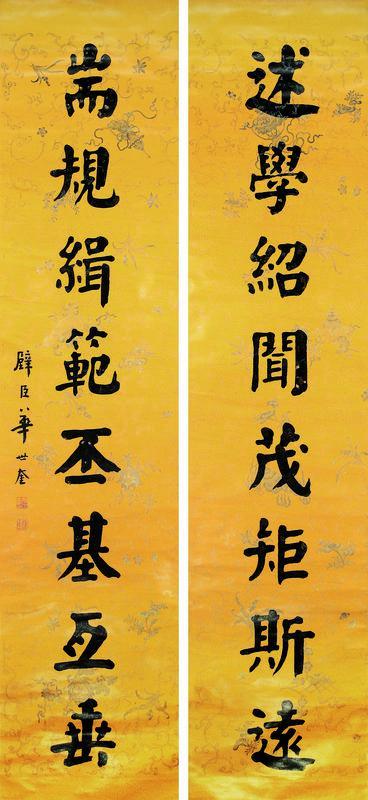 述學紹聞茂矩斯遠
耑規緝範丕基亙垂
璧臣華世奎